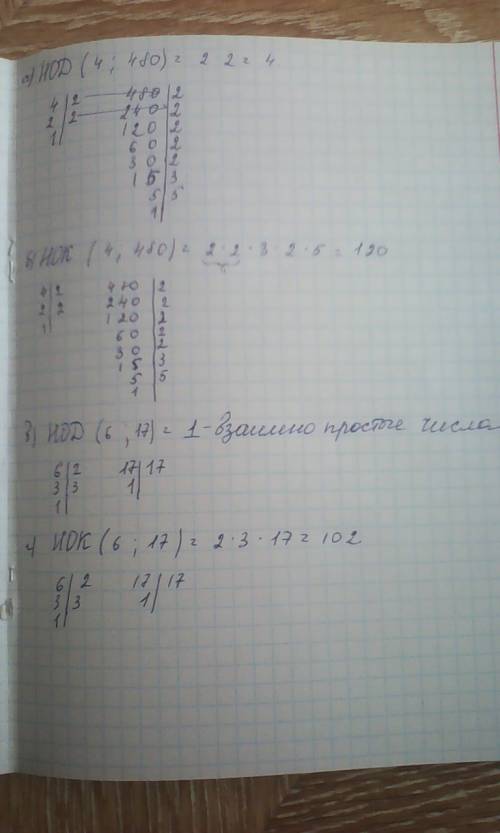 а) НОД (4 ; 480) = 2 2 = 4
4 | 2 480 | 2
2 | 2 240 | 2
1 | 120 | 2
60 | 2
30 | 2
15 | 3
5 | 5
1 |
б) НОК (4, 480) = 2 · 2 · 3 · 2 · 5 = 120
4 | 2 480 | 2
2 | 2 240 | 2
1 | 120 | 2
60 | 2
30 | 2
15 | 3
5 | 5
1 |
в) НОД (6 ; 17) = 1 - взаимно простые числа
6 | 2 17 | 17
3 | 3 1 |
1 |
г) НОК (6 ; 17) = 2 · 3 · 17 = 102
6 | 2 17 | 17
3 | 3 1 |
1 |